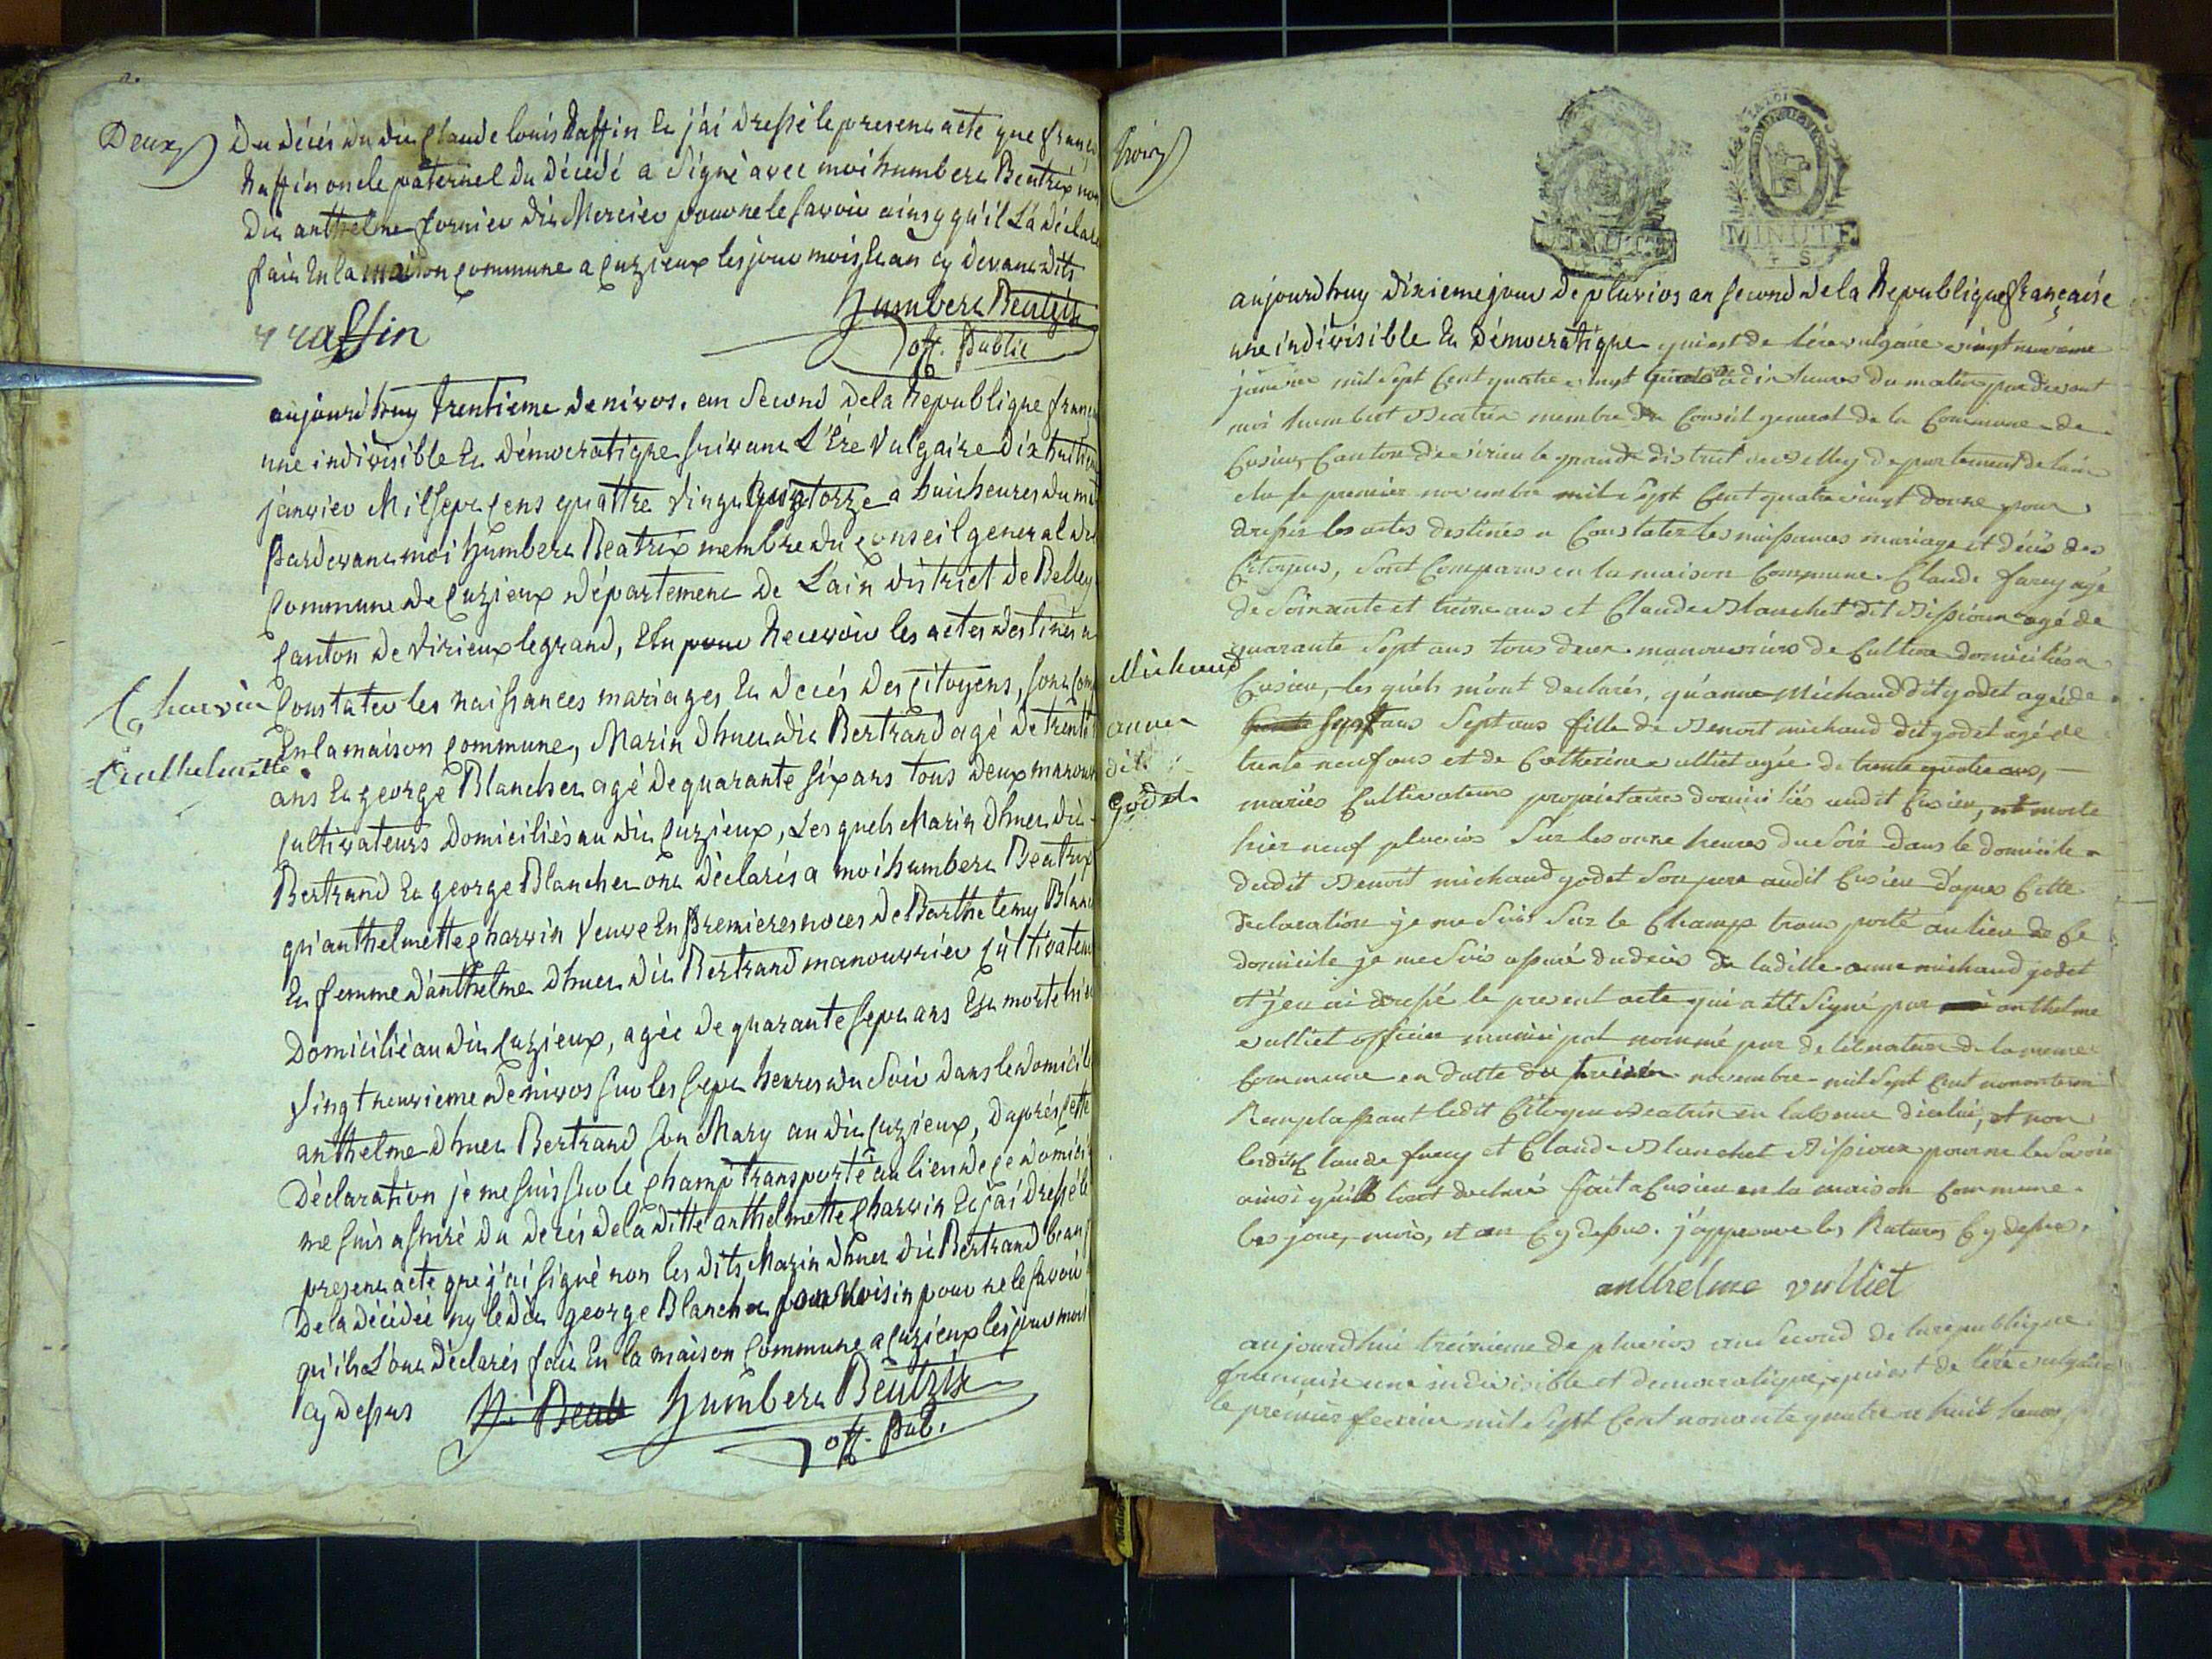 Deux
du décés du dit Claude louis Raffin Et j'ai dressé le present acte que françois
Raffin oncle paternel du décédé a signé avec moi humbert Beatrix non
dit anthelme fornier dit Mercier pour ne le savoir ainsy qu'il L'a déclaré
fait En la maison commune a Cuzieux les jour mois Et an cy devant dits
Humbert Beatrix
raffin
off. Public
aujourd'huy trentieme de nivos. an second de la Republique franç
une indivisible Et démocratique suivant L'Ere Vulgaire dix huitie
janvier Mil Sept Cens quattre Vingt Quatorze a huit heures du mat
Pardevant moi humbert Beatrix membre du Conseil general de
Commune de Cuzieux département de L'ain district de Belley
Canton de Virieux le grand, Elu pour Recevoir les actes destinés a
Charvin
Constater les naissances mariages Et décés des Citoyens, sont Com
En la maison Commune, Marin dhuet dit Bertrand agé de trente
anthelmette
ans Et george Blanchet agé de quarante six ans tous deux manouv
Cultivateurs domiciliés au dit Cuzieux, Les quels Marin dhuet dit
Bertrand Et george Blanchet ont déclarés a moi humbert Beatrix
qu'anthelmette Charvin Veuve En Premieres noces de Barthelemy Blanc
Et femme d'anthelme dhuet dit Bertrand manouvrier Cultivateur
domicilié au dit Cuzieux, agée de quarante sept ans Est morte hier
Vingt neuvieme de nivos sur les sept heures du soir dans le domicile
anthelme dhuet Bertrand son Mary au dit Cuzieux, d'aprés cette
déclaration je me suis sur le champ transporté au lieu de ce domici
me suis assuré du decés de la ditte anthelmette Charvin Et j'ai dressé le
present acte que j'ai signé non les dits Marin dhuet dit Bertrand beau
de la décédée ny le dit george Blanchet Voisin pour ne le savoir
qu'ils L'ont déclarés fait En la maison Commune a Cuzieux les jour mois
cy dessus
Humbert Beatrix
off. Pub.
Trois
MINUTE
MINUTE
aujourdhuy dixieme jour de pluvios an second de la Republique française
une indivisible Et démocratique qui est de l'ère vulgaire vingt neuvieme
janvier mil sept cent quatre vingt quatorze a dix heures du matin par devant
moi humbert Beatrix membre du Conseil general de la Commune de
Cusieu, Canton de virieu le grand district de Belley departement de l'ain
elu le premier novembre mil sept cent quatre vingt douze pour
dresser les actes destinés a Constater les naissances mariage et décès des
Citoyens, sont Comparus en la maison Commune Claude furey agé
de soixante et treize ans et Claude Blanchet dit Bissioux agé de
quarante sept ans tous deux manouvriers de Culture domiciliés a
Michaud
Cusieu, les quels m'ont declarés, qu'anne Michaud dit godet agée de
anne
sept ans fille de Benoit michaud dit godet agé de
dit
trente neuf ans et de Catherine vulliet agée de trente quatre ans,
godet
mariés Cultivateurs propriétaires domiciliés audit Cusieu, est morte
hier neuf pluvios sur les onze heures du soir dans le domicile
dudit Benoit michaud godet son pere audit Cusieu d'apres cette
declaration je me suis sur le Champ trans porté au lieu de ce
domicile je me suis assuré du decés de ladite anne michaud godet
et j'en ai dressé le present acte qui a été signé par anthelme
vulliet officier municipal nommé par deliberation de la meme
Commune en datte du novembre mil sept cent
Remplassant ledit Citoyen Beatrix en l'absence d'icelui, et non
lesdits Claude furey et Claude Blanchet Bissioux pour ne le savoir
ainsi qu'ils l'ont declaré fait a Cusieu en la maison Commune
les jour, mois, et an Cy dessus. j'approuve les Ratures Cy dessus.
anthelme vulliet
aujourdhui treizieme de pluvios an second de la republique
francaise une indivisible et democratique, qui est de l'ère vulgaire
le premier fevrier mil sept Cent nonante quatre a huit heures